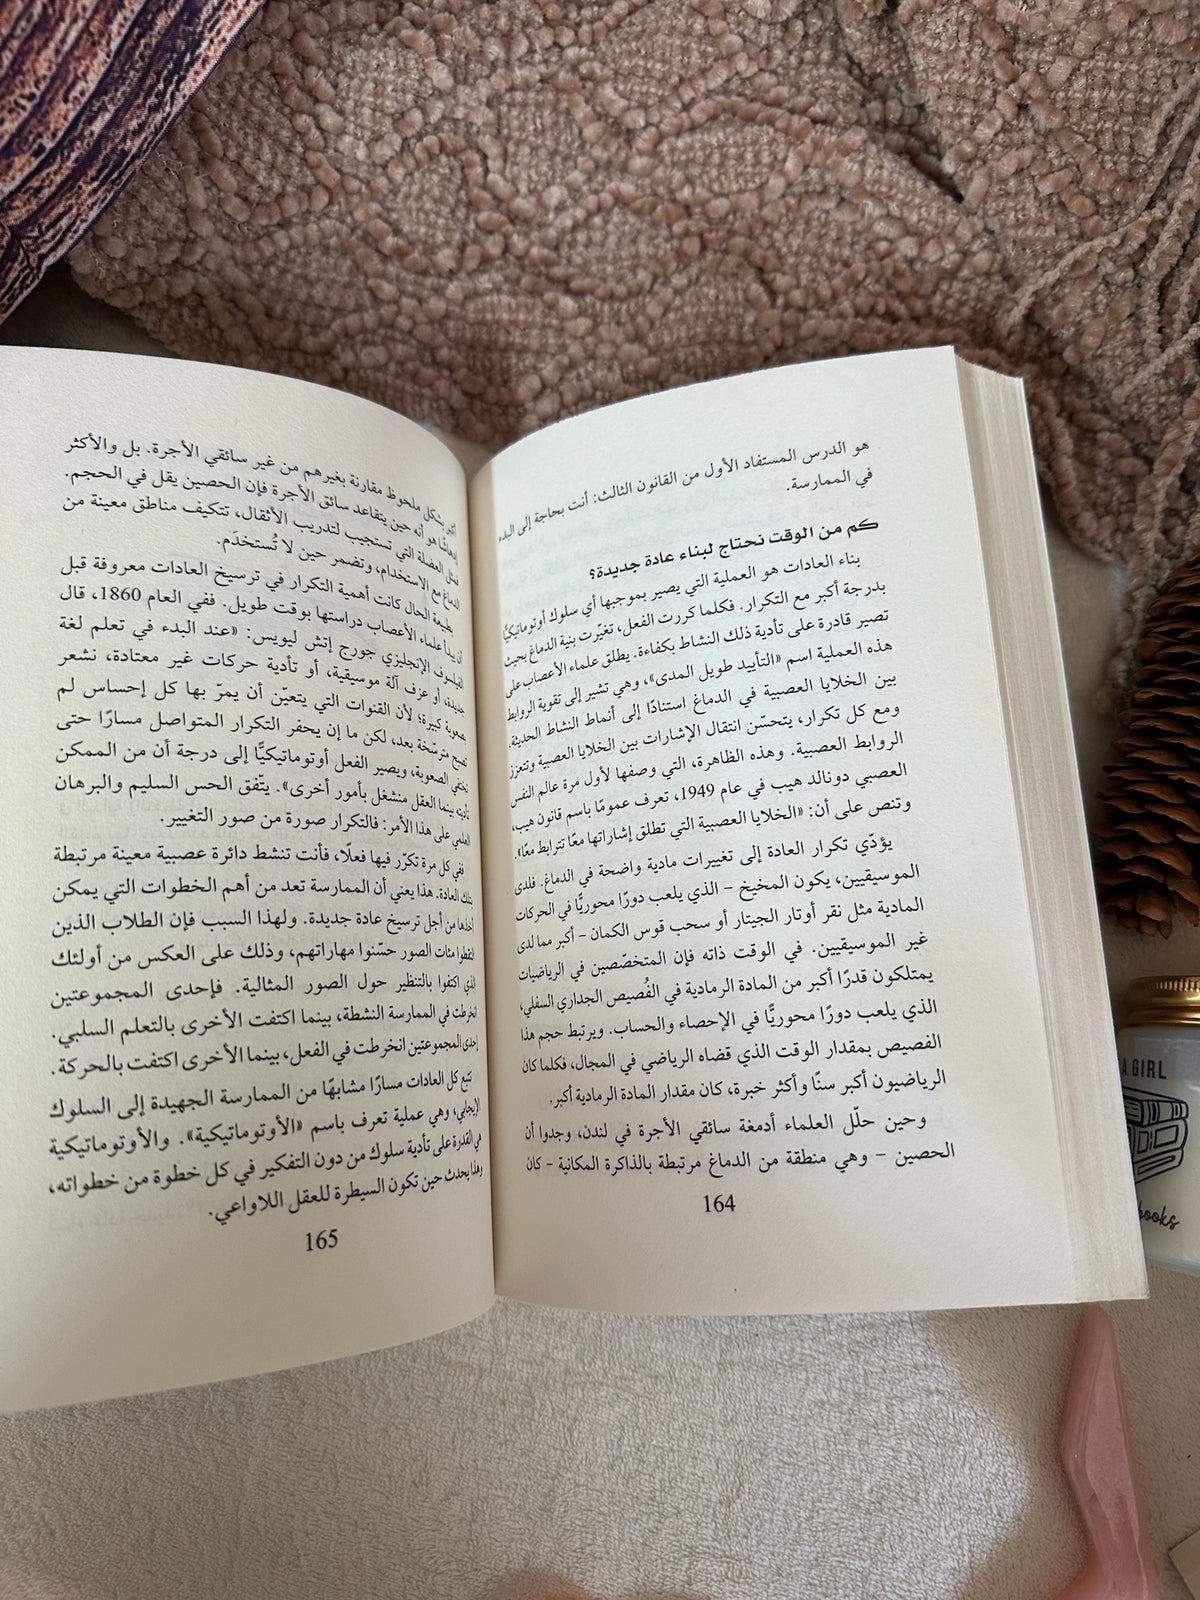 هو الدرس المستفاد الأول من القانون الثالث: أنت بحاجة إلى البدء
في الممارسة.
كم من الوقت نحتاج لبناء عادة جديدة؟
بناء العادات هو العملية التي يصير بموجبها أي سلوك أوتوماتيكيًّا
بدرجة أكبر مع التكرار. فكلما كررت الفعل، تغيّرت بنية الدماغ بحيث
تصير قادرة على تأدية ذلك النشاط بكفاءة. يطلق علماء الأعصاب على
هذه العملية اسم «التأييد طويل المدى»، وهي تشير إلى تقوية الروابط
بين الخلايا العصبية في الدماغ استنادًا إلى أنماط النشاط الحديثة.
ومع كل تكرار، يتحسّن انتقال الإشارات بين الخلايا العصبية وتتعزز
الروابط العصبية. وهذه الظاهرة، التي وصفها لأول مرة عالم النفس
العصبي دونالد هيب في عام 1949، تعرف عمومًا باسم قانون هيب،
وتنص على أن: «الخلايا العصبية التي تطلق إشاراتها معًا تترابط معًا».
يؤدّي تكرار العادة إلى تغييرات مادية واضحة في الدماغ. فلدى
الموسيقيين، يكون المخيخ – الذي يلعب دورًا محوريًّا في الحركات
المادية مثل نقر أوتار الجيتار أو سحب قوس الكمان – أكبر مما لدى
غير الموسيقيين. في الوقت ذاته فإن المتخصّصين في الرياضيات
يمتلكون قدرًا أكبر من المادة الرمادية في الفُصيص الجداري السفلي،
الذي يلعب دورًا محوريًّا في الإحصاء والحساب. ويرتبط حجم هذا
الفصيص بمقدار الوقت الذي قضاه الرياضي في المجال، فكلما كان
الرياضيون أكبر سنًا وأكثر خبرة، كان مقدار المادة الرمادية أكبر.
وحين حلّل العلماء أدمغة سائقي الأجرة في لندن، وجدوا أن
الحصين – وهي منطقة من الدماغ مرتبطة بالذاكرة المكانية – كان
164
أكبر بشكل ملحوظ مقارنة بغيرهم من غير سائقي الأجرة. بل والأكثر
إدهاشًا هو أنه حين يتقاعد سائق الأجرة فإن الحصين يقل في الحجم.
فمثل العضلة التي تستجيب لتدريب الأثقال، تتكيف مناطق معينة من
الدماغ مع الاستخدام، وتضمر حين لا تُستخدَم.
بطبيعة الحال كانت أهمية التكرار في ترسيخ العادات معروفة قبل
أن يبدأ علماء الأعصاب دراستها بوقت طويل. ففي العام 1860، قال
الفيلسوف الإنجليزي جورج إتش ليويس: «عند البدء في تعلم لغة
جديدة، أو عزف آلة موسيقية، أو تأدية حركات غير معتادة، نشعر
بصعوبة كبيرة؛ لأن القنوات التي يتعيّن أن يمرّ بها كل إحساس لم
تصبح مترسّخة بعد، لكن ما إن يحفر التكرار المتواصل مسارًا حتى
تختفي الصعوبة، ويصير الفعل أوتوماتيكيًّا إلى درجة أن من الممكن
تأديته بينما العقل منشغل بأمور أخرى». يتّفق الحس السليم والبرهان
العلمي على هذا الأمر: فالتكرار صورة من صور التغيير.
ففي كل مرة تكرّر فيها فعلًا، فأنت تنشط دائرة عصبية معينة مرتبطة
بتلك العادة. هذا يعني أن الممارسة تعد من أهم الخطوات التي يمكن
أخذها من أجل ترسيخ عادة جديدة. ولهذا السبب فإن الطلاب الذين
التقطوا مئات الصور حسّنوا مهاراتهم، وذلك على العكس من أولئك
الذي اكتفوا بالتنظير حول الصور المثالية. فإحدى المجموعتين
انخرطت في الممارسة النشطة، بينما اكتفت الأخرى بالتعلم السلبي.
إحدى المجموعتين انخرطت في الفعل، بينما الأخرى اكتفت بالحركة.
تتبع كل العادات مسارًا مشابهًا من الممارسة الجهيدة إلى السلوك
الإيجابي، وهي عملية تعرف باسم «الأوتوماتيكية». والأوتوماتيكية
هي القدرة على تأدية سلوك من دون التفكير في كل خطوة من خطواته،
وهذا يحدث حين تكون السيطرة للعقل اللاواعي.
165
A GIRL
books